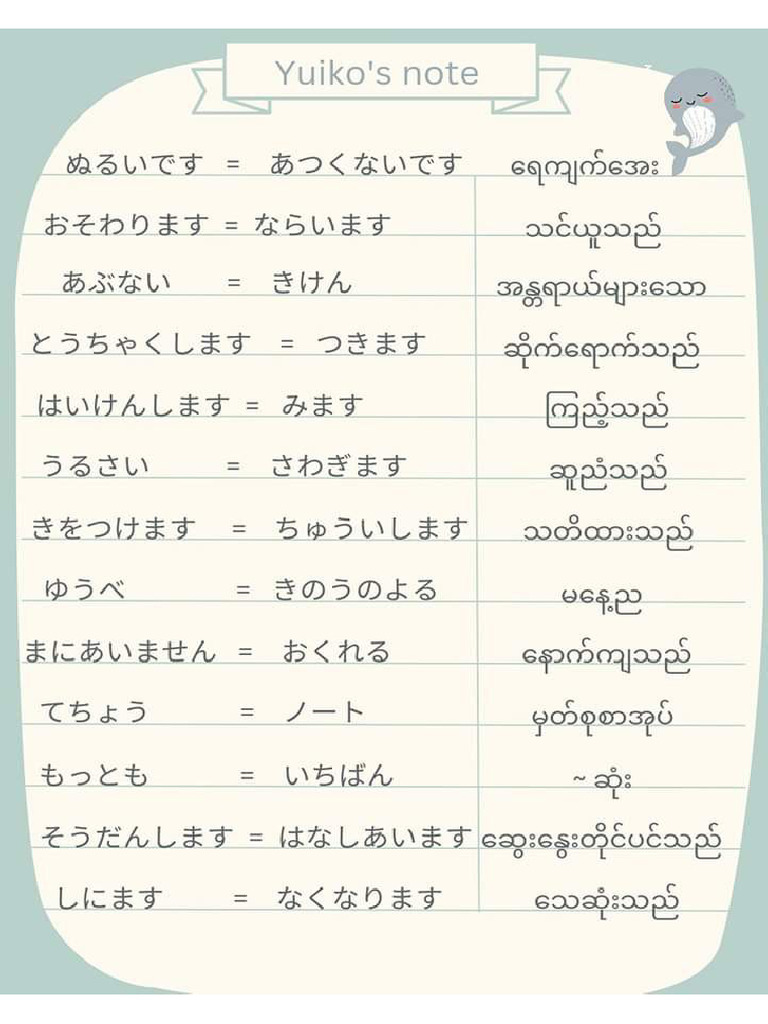 Yuiko's note
ぬるいです = あつくないです ရေကျက်အေး
おそわります = ならいます သင်ယူသည်
あぶない = きけん အန္တရာယ်များသော
とうちゃくします = つきます ဆိုက်ရောက်သည်
はいけんします = みます ကြည့်သည်
うるさい = さわぎます ဆူညံသည်
きをつけます = ちゅういします သတိထားသည်
ゆうべ = きのうのよる မနေ့ည
まにあいません = おくれる နောက်ကျသည်
てちょう = ノート မှတ်စုစာအုပ်
もっとも = いちばん ~ ဆုံး
そうだんします = はなしあいます ဆွေးနွေးတိုင်ပင်သည်
しにます = なくなります သေဆုံးသည်